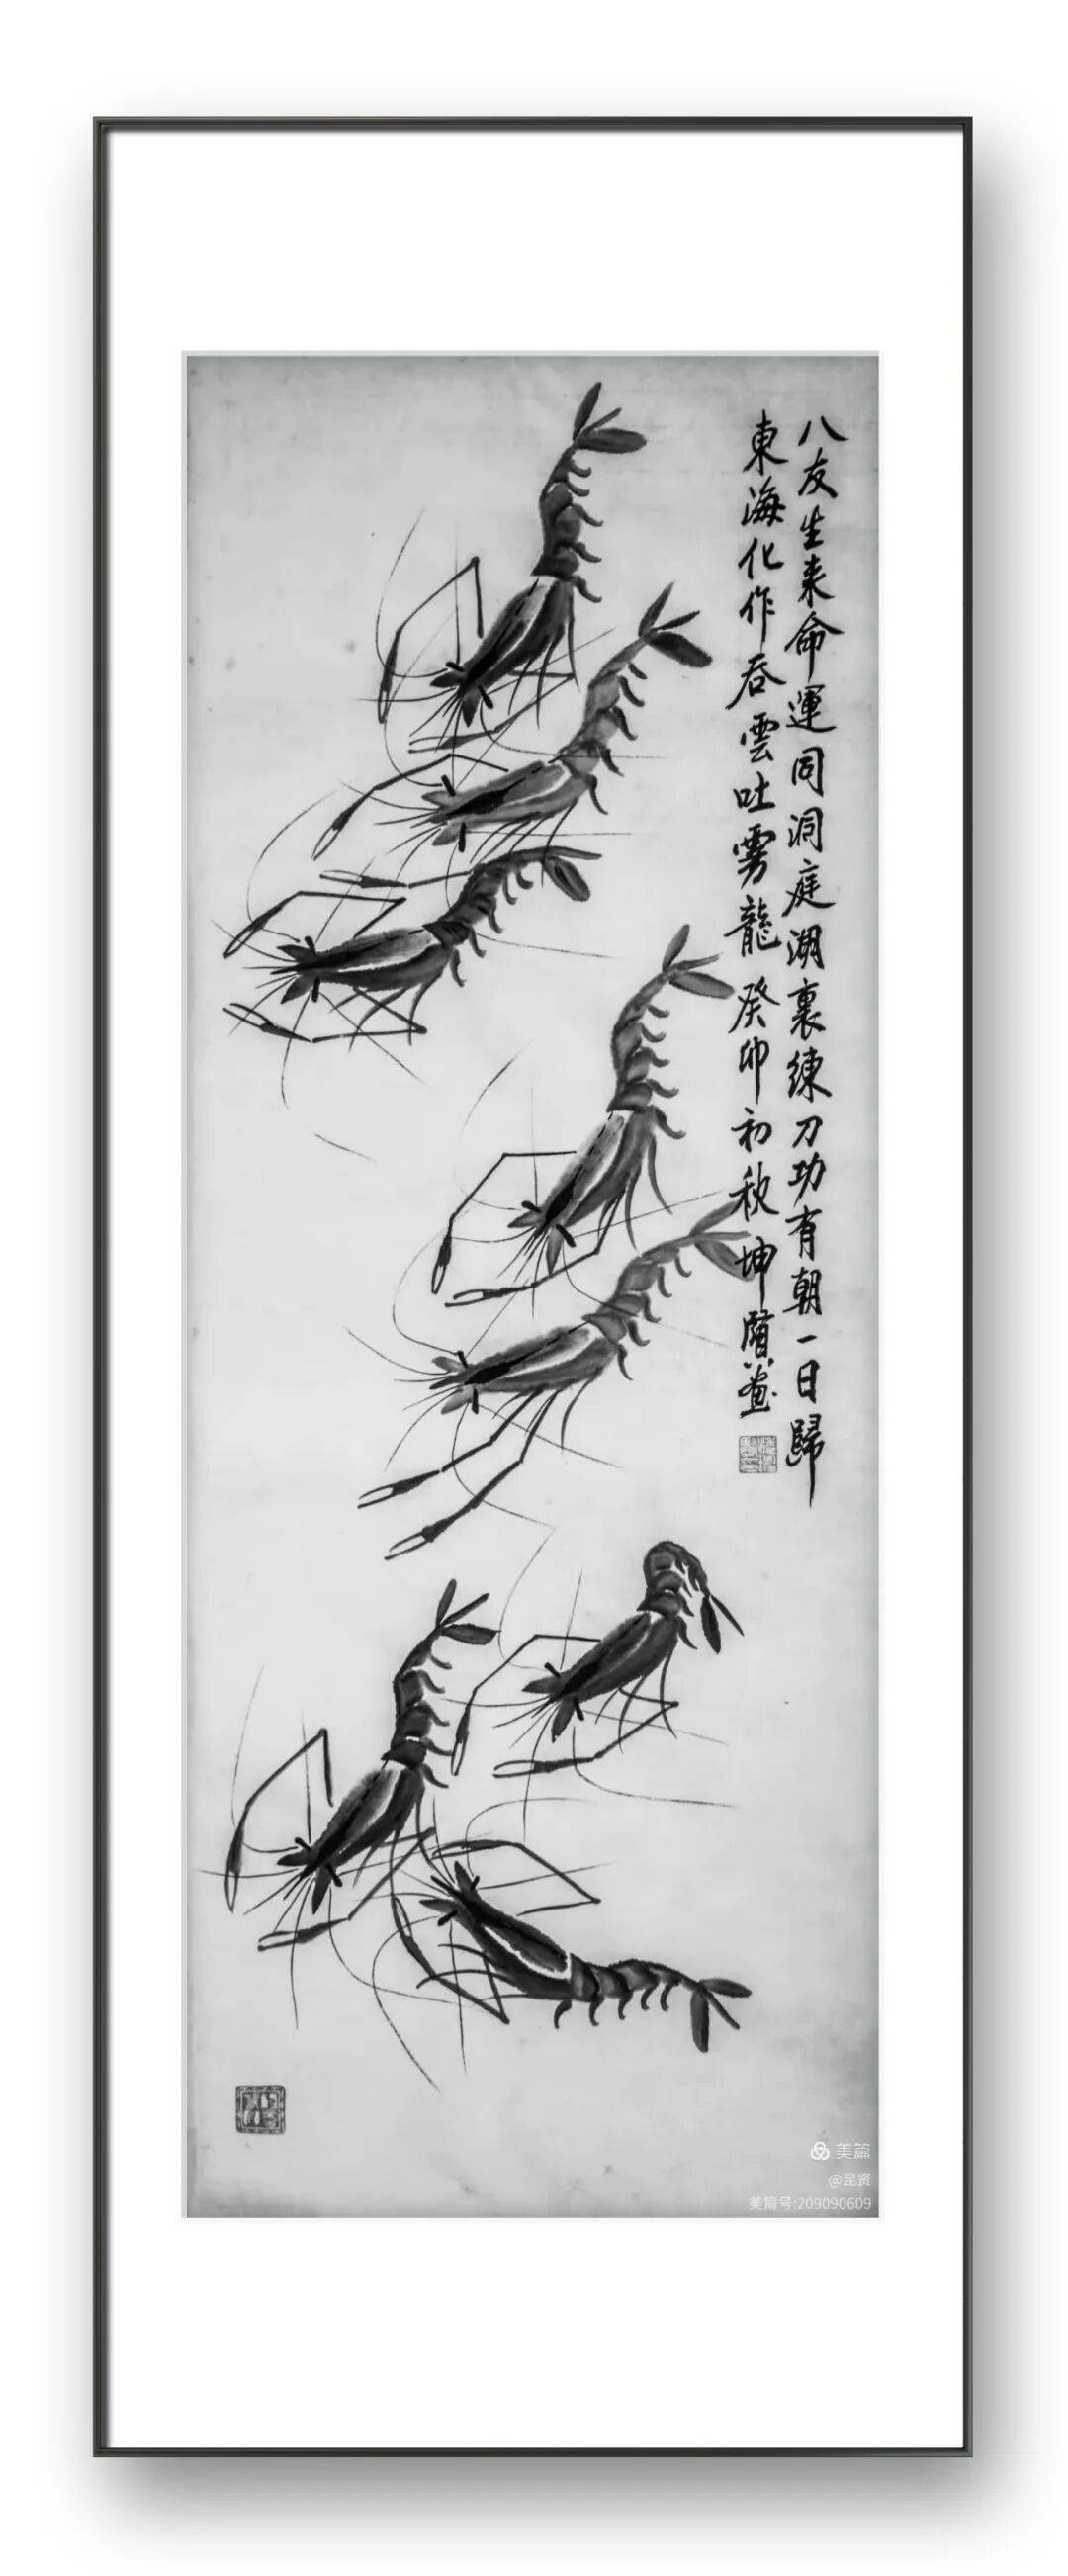 八友生来命運同洞庭湖裏練刀功有朝一日歸
東海化作吞雲吐雾龍 癸卯初秋 坤 畫
美篇
@昆贤
美篇号:209090609